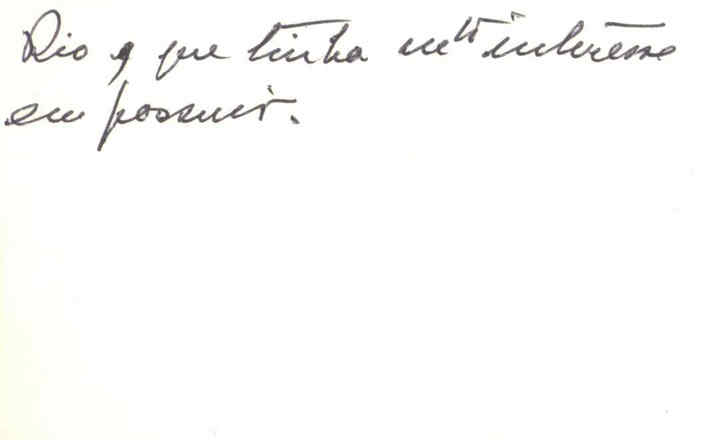 Rio, que tinha mtº interesse
em possuir.